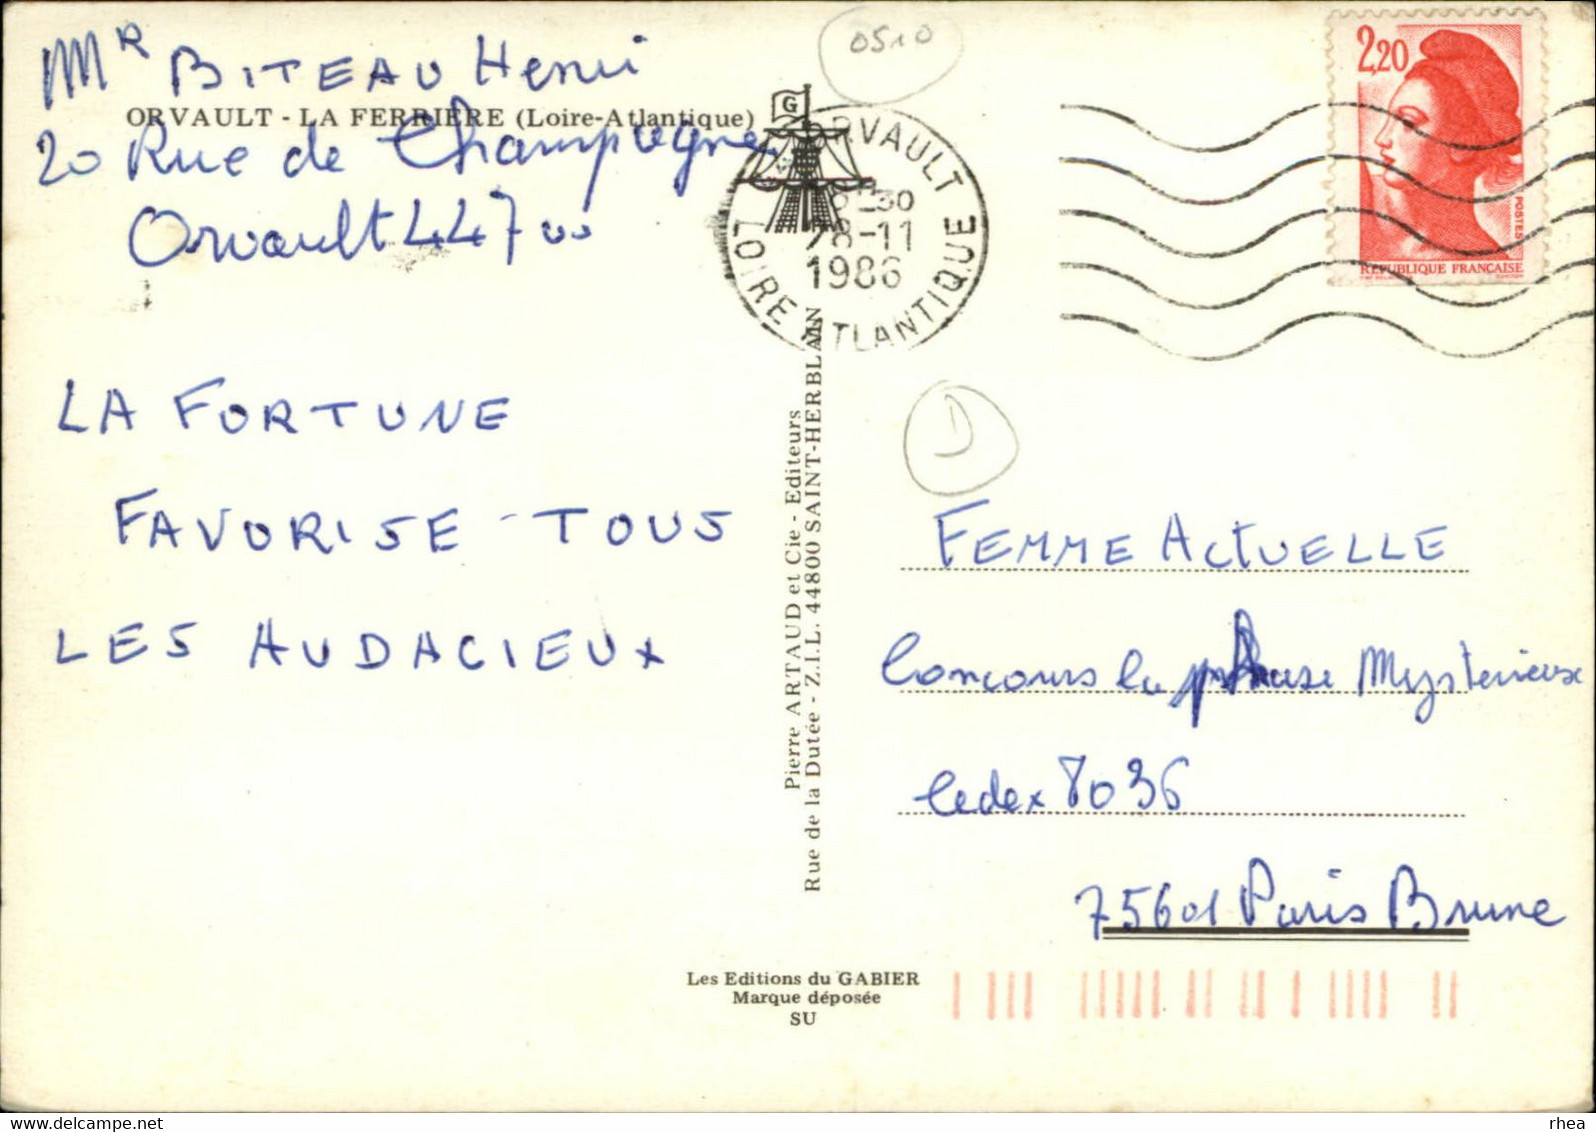 Mr BITEAU Henri
ORVAULT - LA FERRIERE (Loire-Atlantique)
20 Rue de Champagne
Orvault 44700
LA FORTUNE
FAVORISE TOUS
LES AUDACIEUX
0510
G
ORVAULT
28-11
1986
LOIRE ATLANTIQUE
2,20
POSTES
REPUBLIQUE FRANÇAISE
Pierre ARTAUD et Cie - Editeurs
Rue de la Dutée - Z.I.L. 44800 SAINT-HERBLAIN
D
FEMME ACTUELLE
Concours la phrase Mysterieuse
Cedex 8036
75601 Paris Brune
Les Editions du GABIER
Marque déposée
SU
rhea